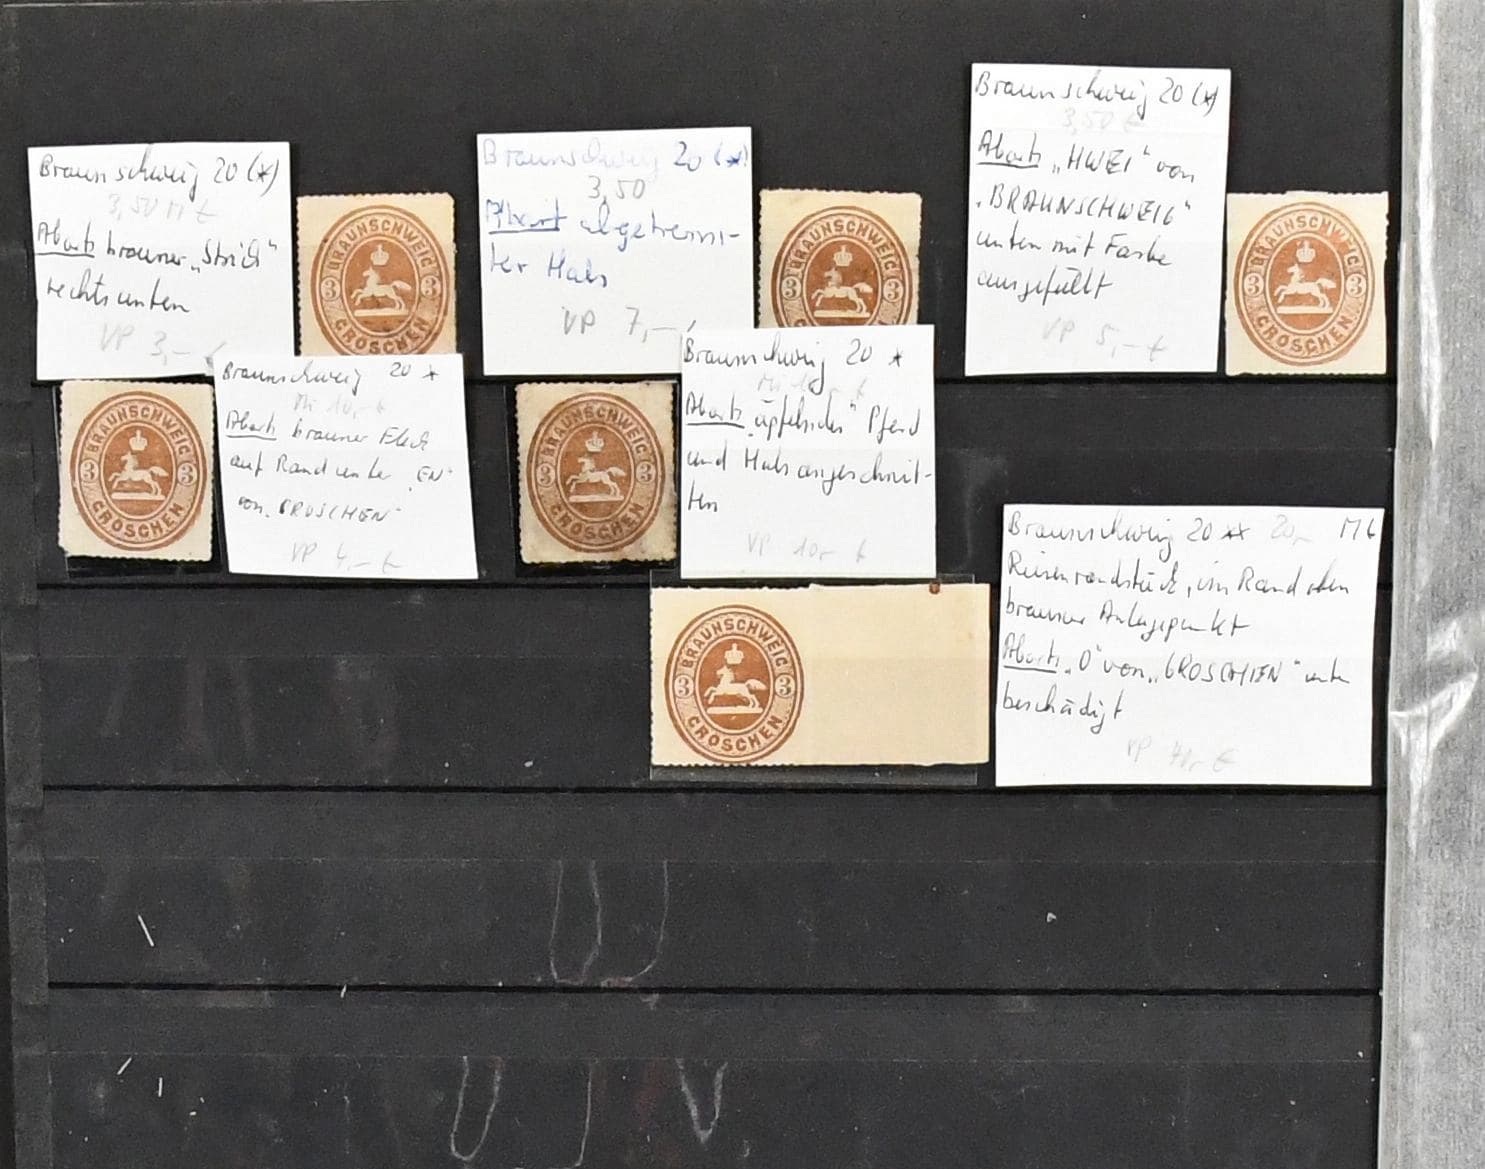 Braunschweig 20 (*)
3,50 M €
Abart: brauner „Strich"
rechts unten
VP 3,- €
BRAUNSCHWEIG
3 3
GROSCHEN
Braunschweig 20 (*)
3,50
Abart abgetrenn-
ter Hals
VP 7,-
BRAUNSCHWEIG
3 3
GROSCHEN
Braunschweig 20 (*)
3,50 €
Abart: „HWEI" von
„BRAUNSCHWEIG"
unten mit Farbe
ausgefüllt
VP 5,- €
BRAUNSCHWEIG
3 3
GROSCHEN
BRAUNSCHWEIG
3 3
GROSCHEN
Braunschweig 20 *
Mi 10,- €
Abart: brauner Fleck
auf Rand unter „EN"
von „GROSCHEN"
VP 4,- €
BRAUNSCHWEIG
3 3
GROSCHEN
Braunschweig 20 *
Mi 10,- €
Abart: „äpfelndes" Pferd
und Hals angeschnit-
ten
VP 10,- €
BRAUNSCHWEIG
3 3
GROSCHEN
Braunschweig 20 ** 20,- M €
Riesenrandstück, im Rand oben
brauner Anlegepunkt
Abart: „O" von „GROSCHEN" unten
beschädigt
VP 40,- €